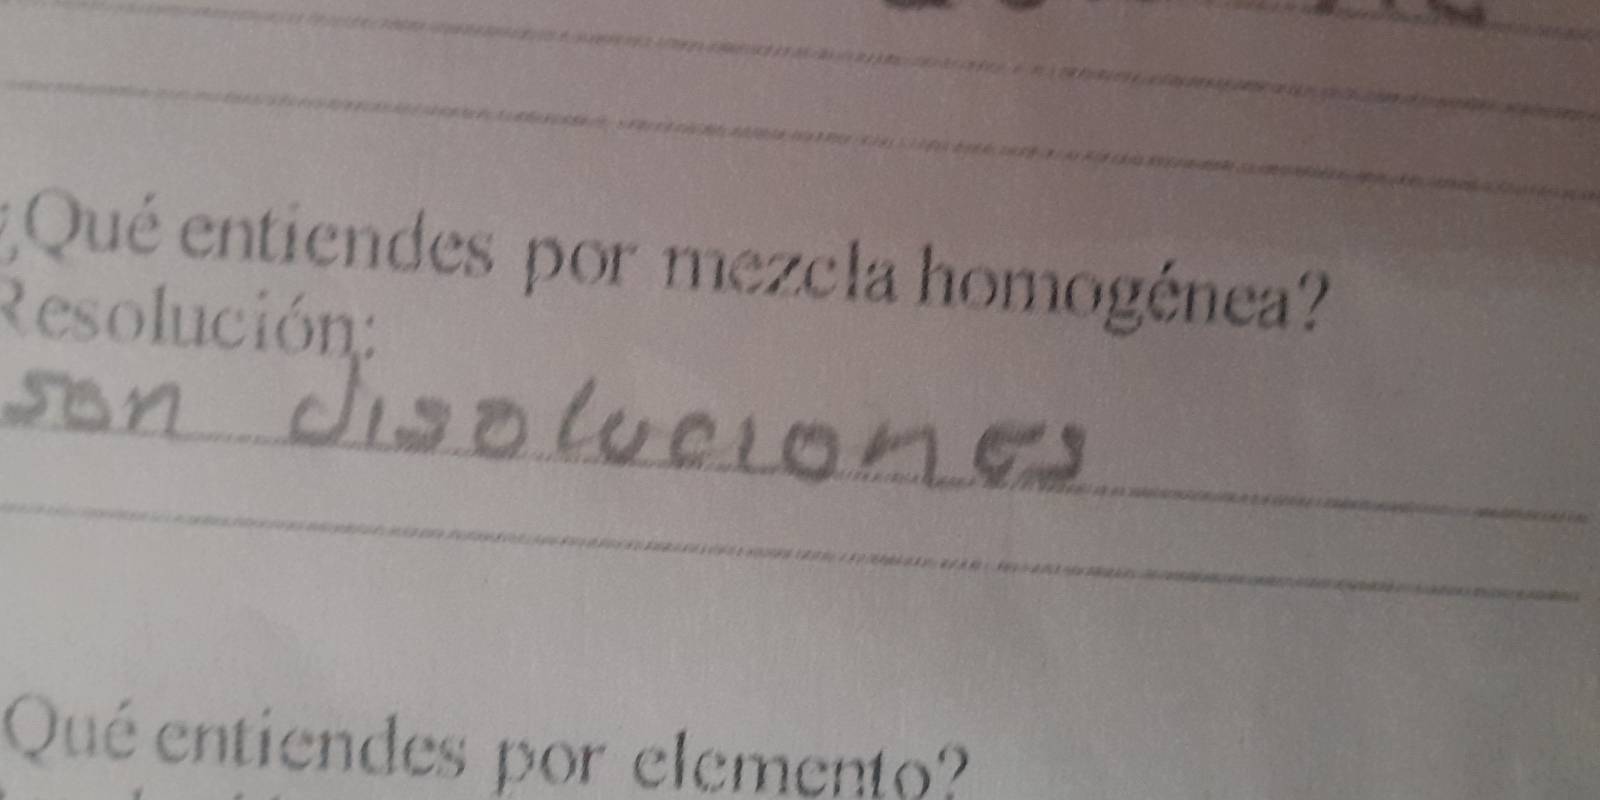 ¿Qué entiendes por mezcla homogénea?
Resolución:
son disoluciones
Qué entiendes por elemento?